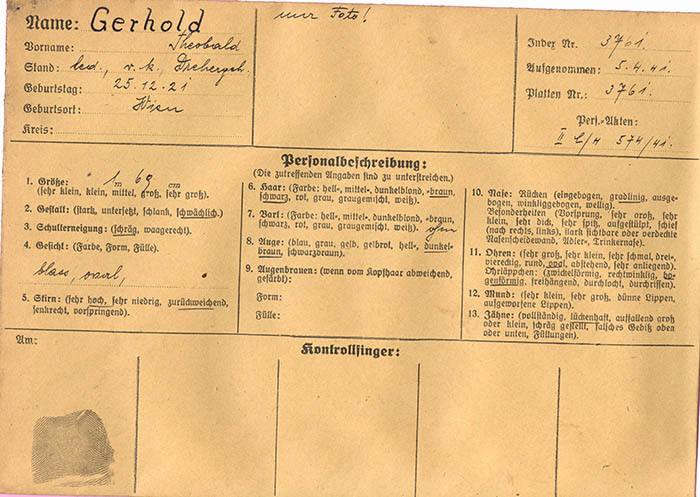 Name: Gerhold
Vorname: Theobald
Stand: led., r. k.,
Geburtstag: 25.12.21
Geburtsort: Wien
Kreis:
nur Foto!
Index Nr. 3761.
Aufgenommen: 5.4.41.
Platten Nr.: 3761.
Pers.-Akten:
574/41.
Personalbeschreibung:
(Die zutreffenden Angaben sind zu unterstreichen.)
1. Größe: 1 m 69 cm
(sehr klein, klein, mittel, groß, sehr groß).
2. Gestalt: (stark, untersetzt, schlank, schwächlich.)
3. Schulterneigung: (schräg, waagerecht).
4. Gesicht: (Farbe, Form, Fülle).
blass, oval,
5. Stirn: (sehr hoch, sehr niedrig, zurückweichend,
senkrecht, vorspringend).
6. Haar: (Farbe: hell-, mittel-, dunkelblond, -braun,
schwarz, rot, grau, graugemischt, weiß).
7. Bart: (Farbe: hell-, mittel-, dunkelblond, -braun,
schwarz, rot, grau, graugemischt, weiß). ohne
8. Auge: (blau, grau, gelb, gelbrot, hell-, dunkel-
braun, schwarzbraun).
9. Augenbrauen: (wenn vom Kopfhaar abweichend,
gefärbt):
Form:
Fülle:
10. Nase: Rücken (eingebogen, gradlinig, ausge-
bogen, winkliggebogen, wellig).
Besonderheiten (Vorsprung, sehr groß, sehr
klein, sehr dick, sehr spitz, aufgestülpt, schief
(nach rechts, links), stark sichtbare oder verdeckte
Nasenscheidewand, Adler-, Trinkernase).
11. Ohren: (sehr groß, sehr klein, sehr schmal, drei-,
viereckig, rund, oval, abstehend, sehr anliegend).
Ohrläppchen: (zwickelförmig, rechtwinklig, bo-
genförmig, freihängend, durchlocht, durchrissen).
12. Mund: (sehr klein, sehr groß, dünne Lippen,
aufgeworfene Lippen).
13. Zähne: (vollständig, lückenhaft, auffallend groß
oder klein, schräg gestellt, falsches Gebiß oben
oder unten, Füllungen).
Am:
Kontrollfinger: